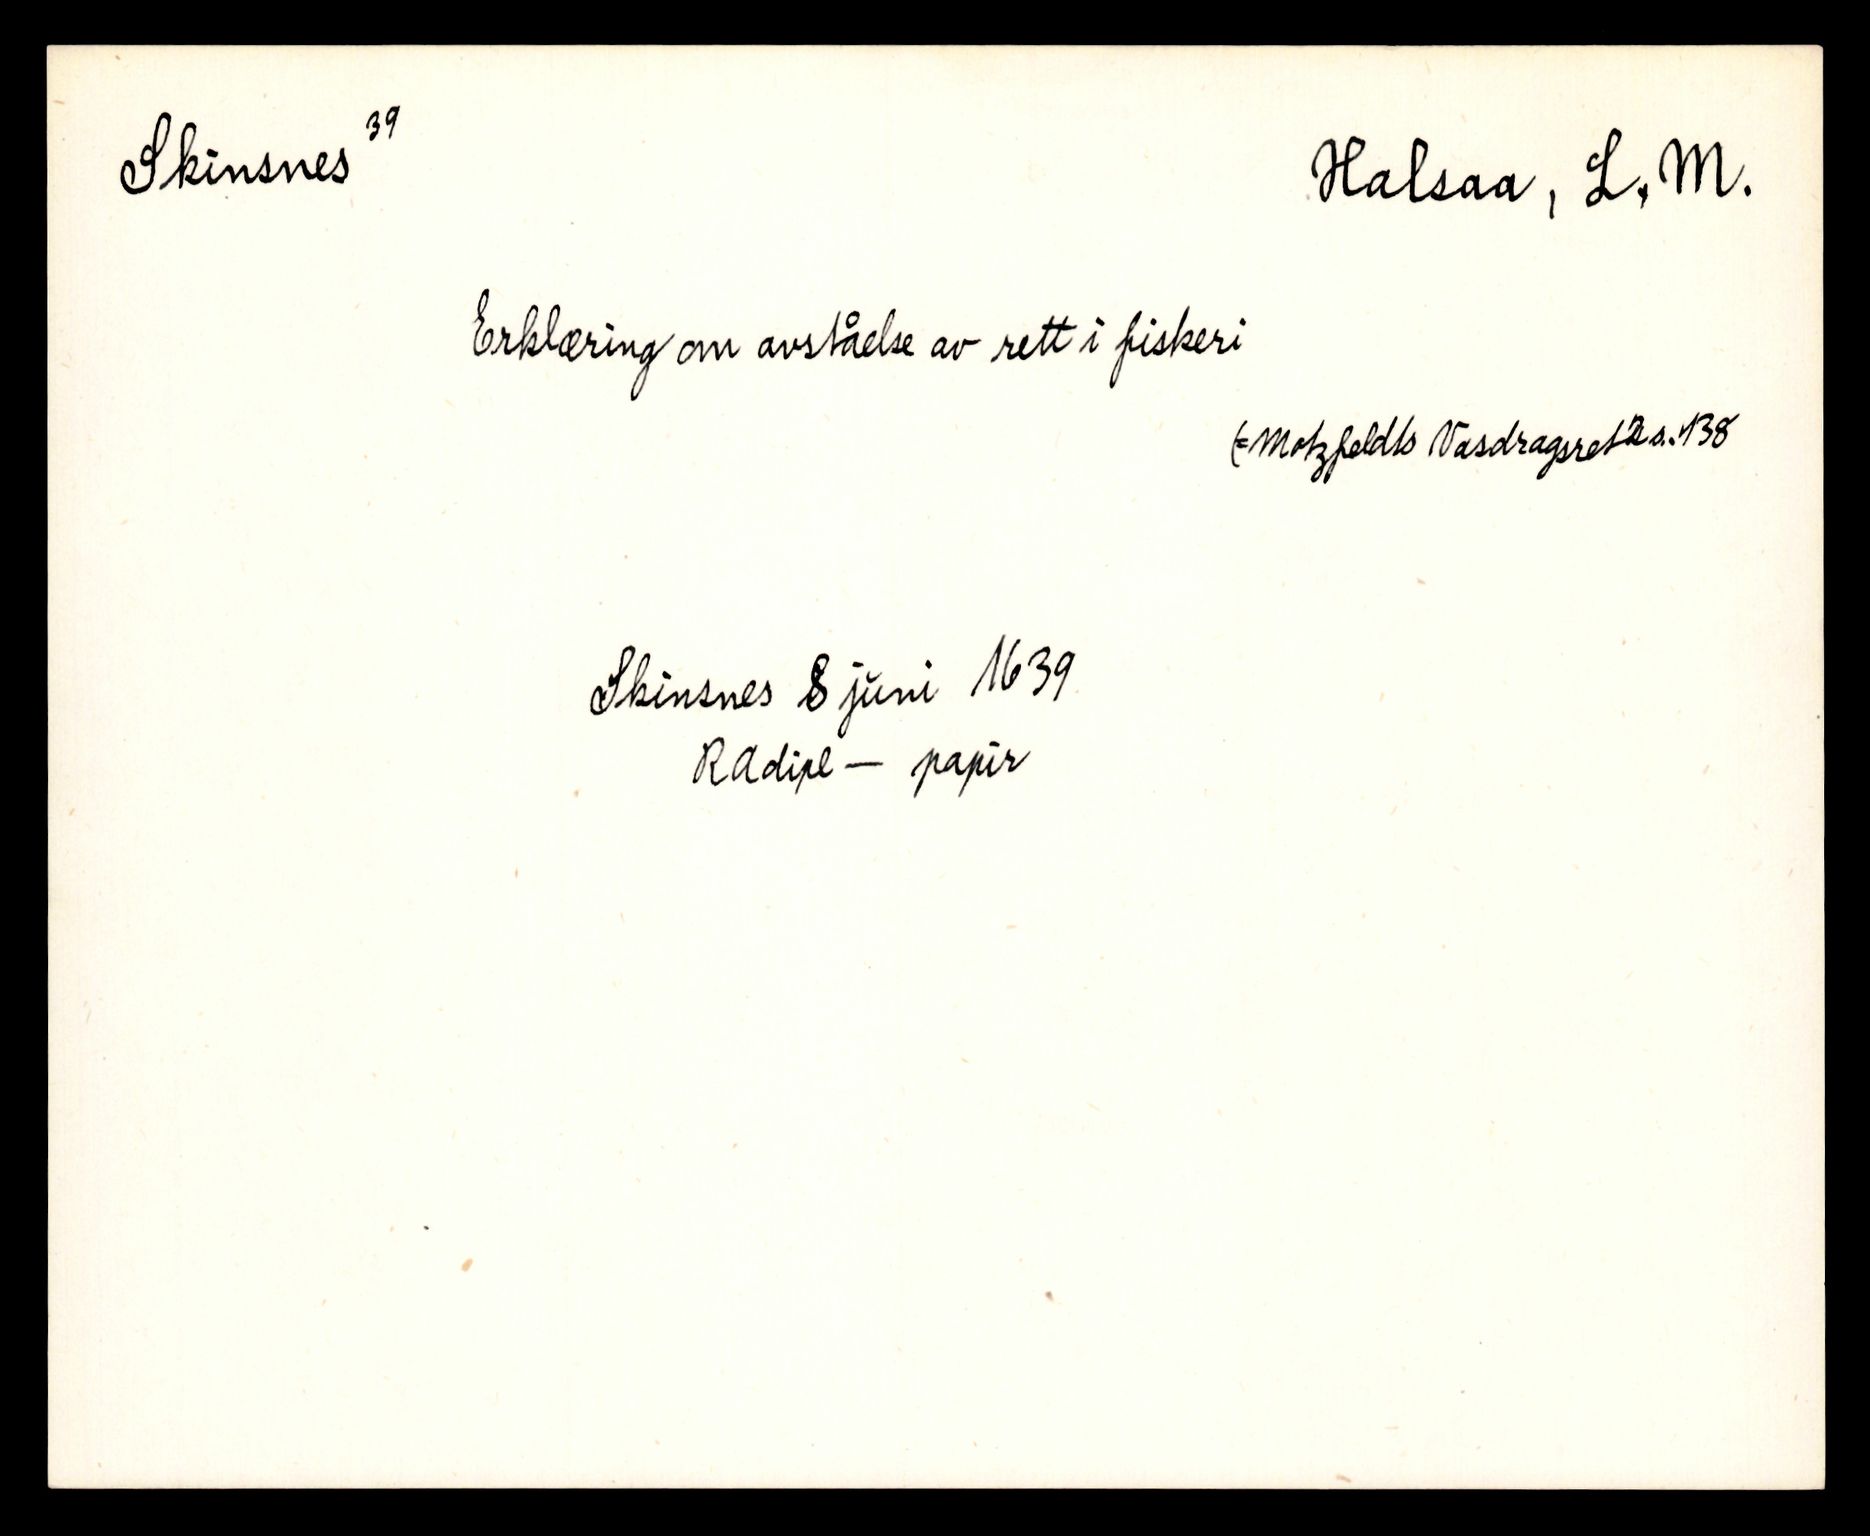 Skinsnes 39
Halsaa, L. M.
Erklæring om avståelse av rett i fiskeri
(= Motzfeldts Vasdragsret s. 138
Skinsnes 8 juni 1639
RAdipl — papir